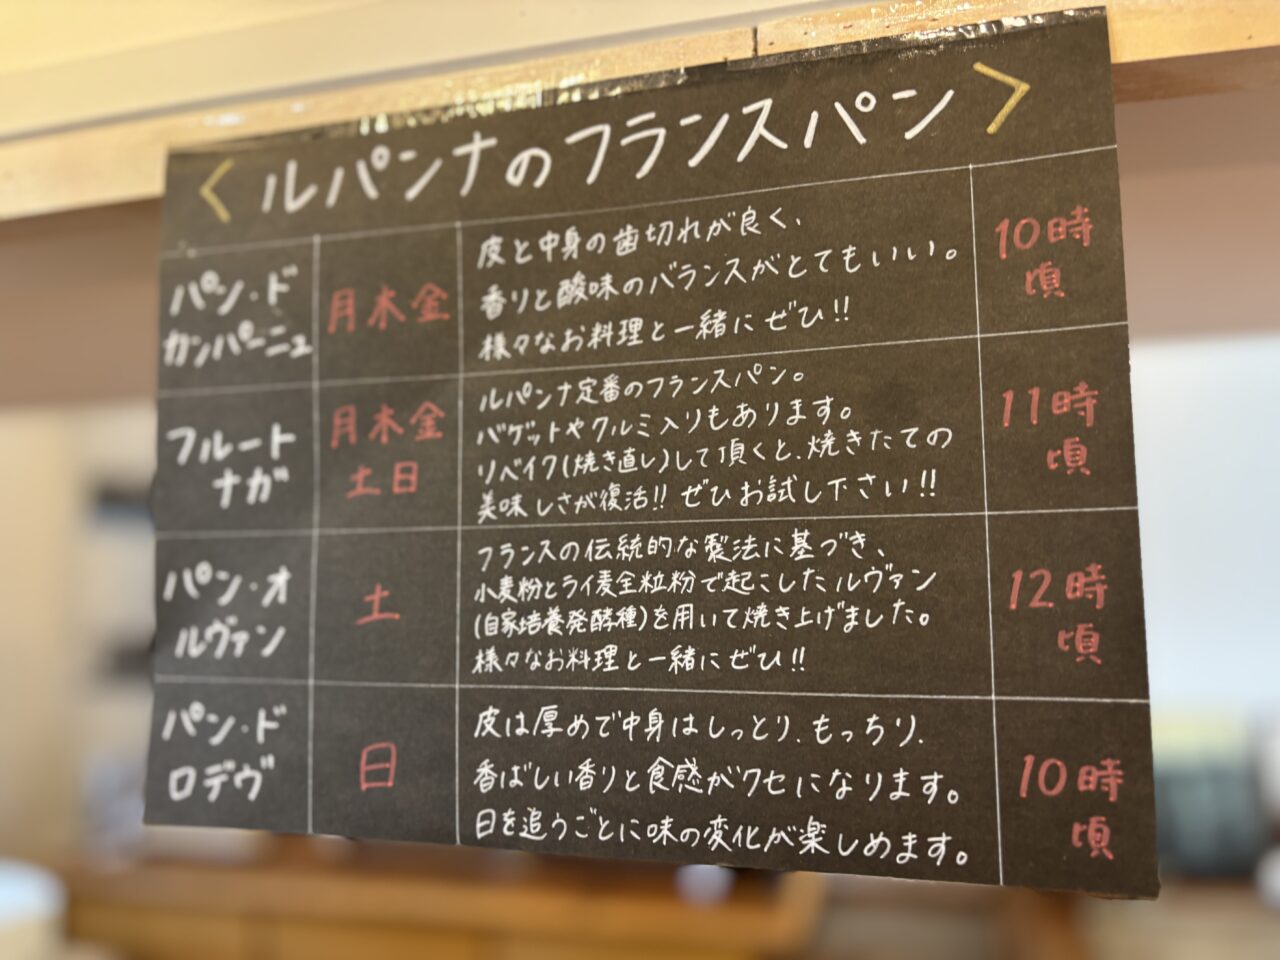 <ルパンナのフランスパン>
パン・ド
カンパーニュ
月木金
皮と中身の歯切れが良く、
香りと酸味のバランスがとてもいい。
様々なお料理と一緒にぜひ!!
10時
頃
フルート
ナガ
月木金
土日
ルパンナ定番のフランスパン。
バゲットやクルミ入りもあります。
リベイク(焼き直し)して頂くと、焼きたての
美味しさが復活!! ぜひお試し下さい!!
11時
頃
パン・オ
ルヴァン
土
フランスの伝統的な製法に基づき、
小麦粉とライ麦全粒粉で起こしたルヴァン
(自家培養発酵種)を用いて焼き上げました。
様々なお料理と一緒にぜひ!!
12時
頃
パン・ド
ロデヴ
日
皮は厚めで中身はしっとり、もっちり、
香ばしい香りと食感がクセになります。
日を追うごとに味の変化が楽しめます。
10時
頃